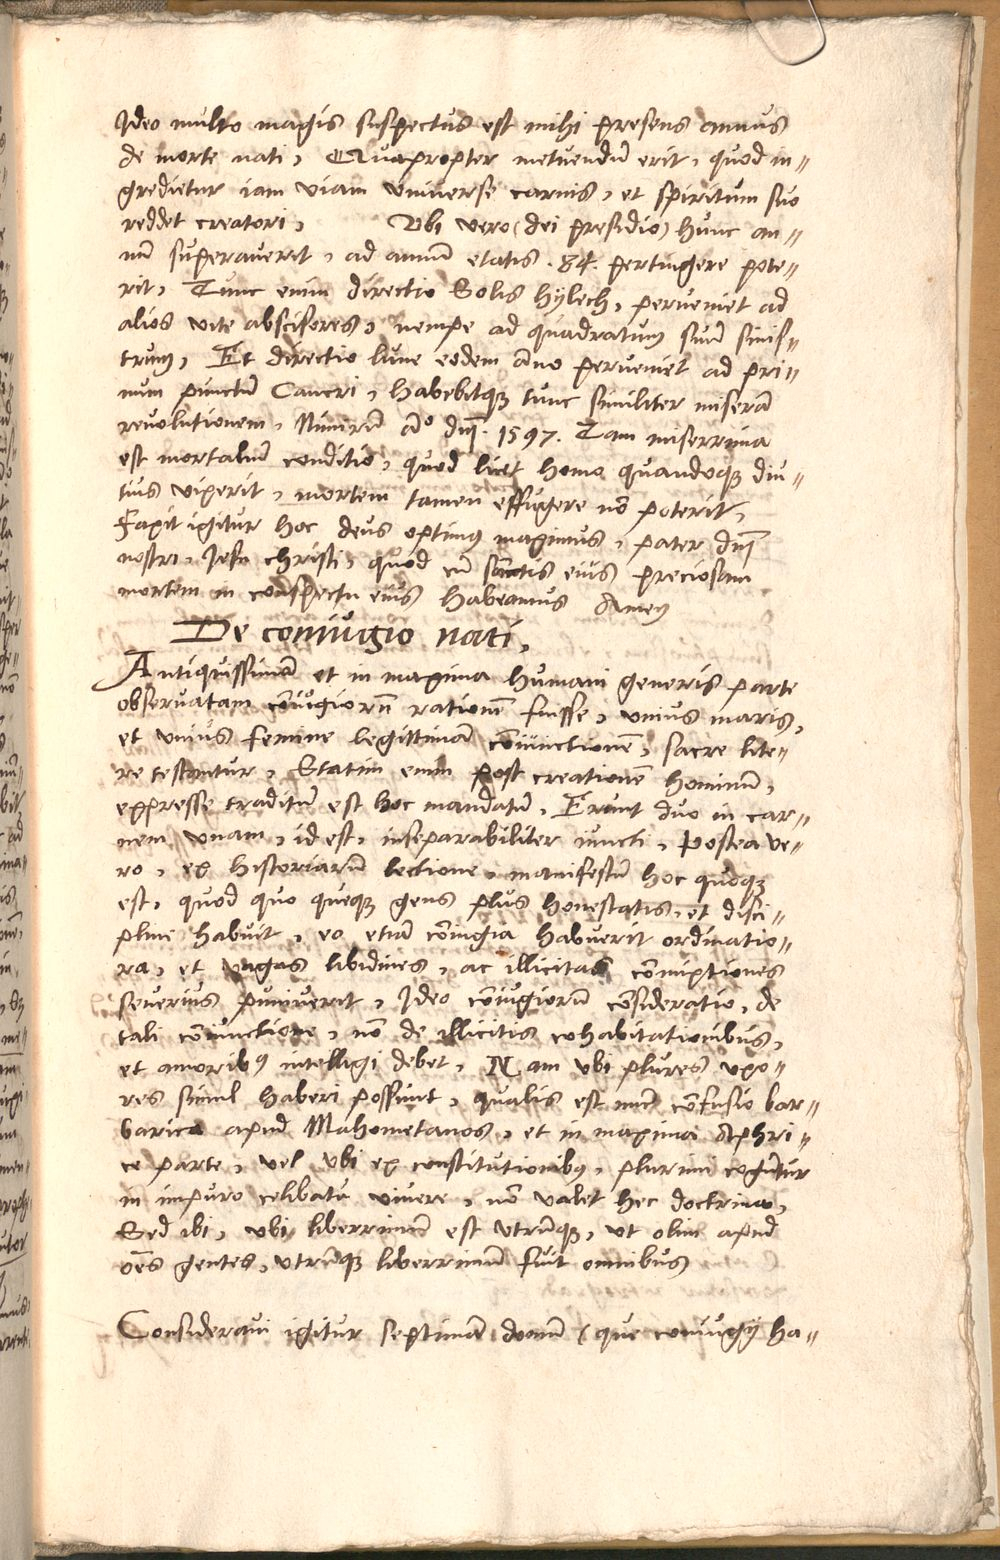 Ideo multo magis suspectus est mihi presens annus
de morte nati, Quapropter metuendū erit, quod in=
gredietur iam viam universe carnis, et spiritum suo
reddet creatori, Vbi vero (dei presidio) hunc an=
nū superaverit, ad annū etatis .84. pertingere pote=
rit, Tunc enim directio Solis hylech, perveniet ad
alios vite abscisores, nempe ad quadratum suū sinis=
trum, Et directio lune eodem āno perveniet ad pri=
mum punctū Cancri, habebitqꝫ tunc similiter miserā
revolutionem, Nimirū āo dn̄j. 1597. Tam miserrima
est mortaliū conditio, quod licet homo quandoqꝫ diu=
tius vixerit, mortem tamen effugere nō poterit,
Faxit igitur hoc deus optimus maximus, pater dn̄j
nostri, Jesu christi, quod cū sanctis eius preciosam
mortem in conspectu eius habeamus Amen
De coniugio nati,
Antiquissimā et in maxima humani generis parte
observatam cōiugiorū rationē fuisse, unius maris,
et unius femine legittimā cōiunctionē, sacre lite=
re testantur, Statim enim post creationē hominū,
expresse traditū est hoc mandatū, Erunt duo in car=
nem unam, id est, inseparabiliter iuncti, Postea ve=
ro, ex historiarū lectione, manifestū hoc quoqꝫ
est, quod quo queqꝫ gens plus honestatis, et disci=
pline habuit, eo etiā cōiugia habuerit ordinatio=
ra, et vagas libidines, ac illicitas coniunctiones
severius puniverit, Ideo cōiugiorū cōsideratio, de
tali cōiunctione, nō de illicitis cohabitationibus,
et amoribꝰ intelligi debet, Nam ubi plures uxo=
res simul haberi possunt, qualis est nunc cōfusio bar=
barica apud Mahometanos, et in maxima Aphri=
ce parte, vel ubi ex constitutionibꝰ, plurimi cogūtur
in impuro celibatu vivere, nō valet hec doctrina,
Sed ibi, ubi liberrimū est utrūqꝫ, ut olim apud
oēs gentes, utrūqꝫ liberrimū fuit omnibus
Consideravi igitur septimā domū (que coniugij ha=